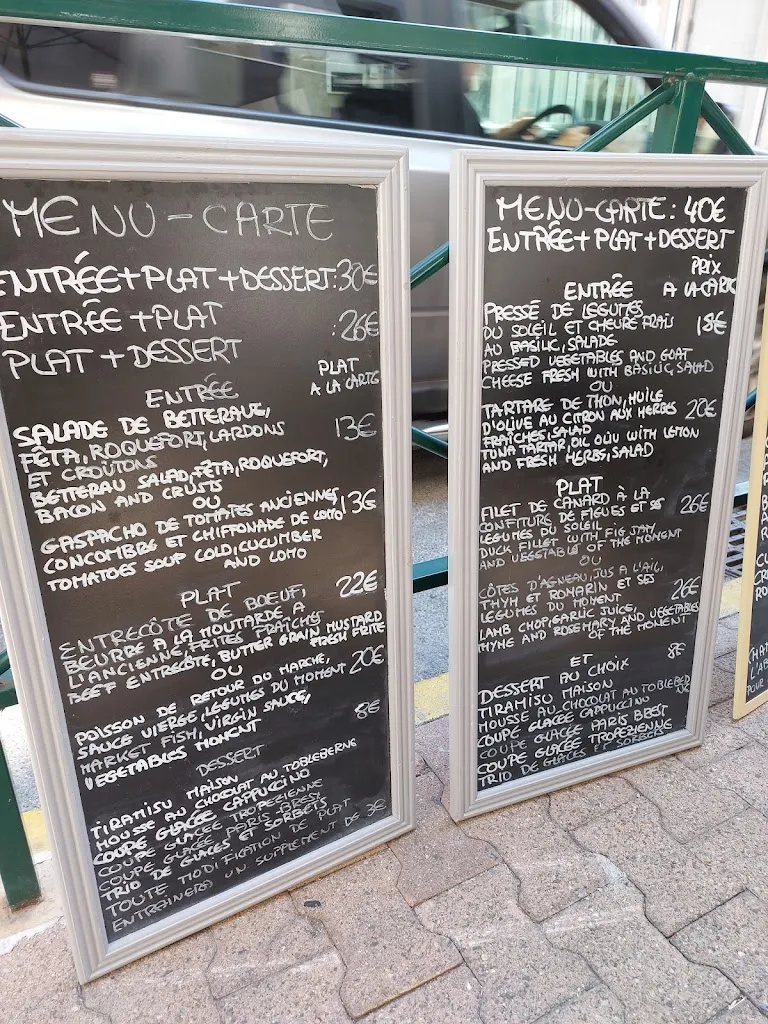 MENU-CARTE
ENTRÉE+PLAT+DESSERT:30€
ENTRÊE+PLAT :26€
PLAT+DESSERT
PLAT
A LA CARTE
ENTRÉE
SALADE DE BETTERAVE,
FÊTA, ROQUEFORT, LARDONS 13€
ET CROÛTONS
BETTERAU SALAD, FÊTA, ROQUEFORT,
BACON AND CRUSTS
OU
GASPACHO DE TOMATES ANCIENNES 13€
CONCOMBRE ET CHIFFONADE DE LOMO
TOMATOES SOUP COLD, CUCUMBER
AND LOMO
PLAT 22€
ENTRECÔTE DE BOEUF,
BEURRE A LA MOUTARDE A
L'ANCIENNE, FRITES FRAÎCHES
BEEF ENTRECÔTE, BUTTER GRAIN MUSTARD
FRESH FRITE
OU
POISSON DE RETOUR DU MARCHE, 20€
SAUCE VIERGE, LEGUMES DU MOMENT
MARKET FISH, VIRGIN SAUCE,
VEGETABLES MONENT
DESSERT 8€
TIRAMISU MAISON
MOUSSE AU CHOCOLAT AU TOBLEBERNE
COUPE GLACÉE CAPPUCCINO
COUPE GLACÉE TROPEZIENNE
COUPE GLACÉE PARIS BREST
TRIO DE GLACES ET SORBETS
TOUTE MODIFICATION DE PLAT
ENTRAINERA UN SUPPLEMENT DE 3€
MENU-CARTE: 40€
ENTRÊE+PLAT+DESSERT
PRIX
ENTRÊE A LA CARTE
PRESSÉ DE LEGUMES
DU SOLEIL ET CHEVRE FRAIS 18€
AU BASILIC, SALADE
PRESSED VEGETABLES AND GOAT
CHEESE FRESH WITH BASILIC, SALAD
OU
TARTARE DE THON, HUILE
D'OLIVE AU CITRON AUX HERBES 20€
FRAÎCHES, SALAD
TUNA TARTAR, OIL OLIV WITH LEMON
AND FRESH HERBS, SALAD
PLAT
FILET DE CANARD À LA 26€
CONFITURE DE FIGUES ET SES
LEGUMES DU SOLEIL
DUCK FILLET WITH FIG JAM
AND VEGETABLES OF THE MOMENT
OU
CÔTES D'AGNEAU, JUS A L'AIL,
THYM ET ROMARIN ET SES 26€
LEGUMES DU MOMENT
LAMB CHOP, GARLIC JUICE,
THYME AND ROSEMARY AND VEGETABLES
OF THE MONENT
ET 8€
DESSERT AU CHOIX
TIRAMISU MAISON
MOUSSE AU CHOCOLAT AU TOBLEBED
COUPE GLACÉE CAPPUCCINO
COUPE GLACEE PARIS BREST
COUPE GLACÉE TROPEZIENNE
TRIO DE GLACES ET SORBETS